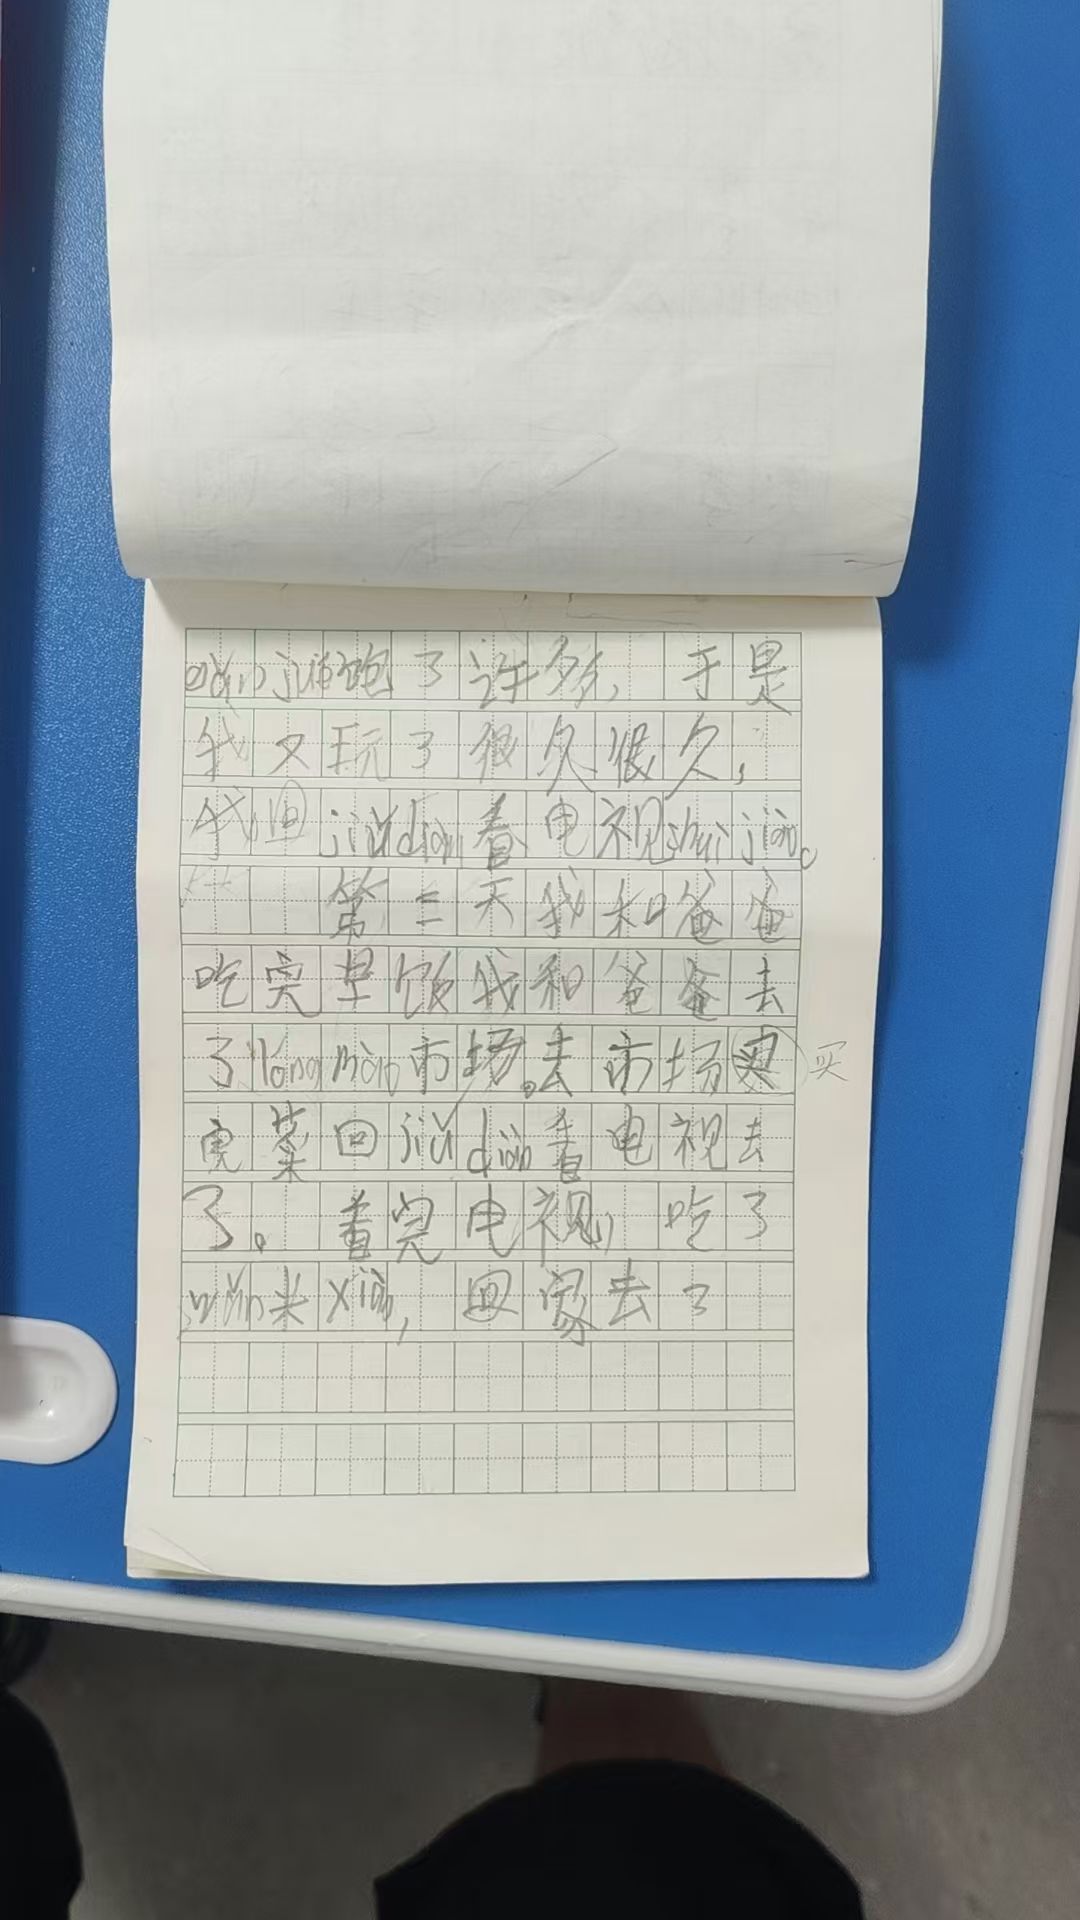 跑了许多,于是
我又玩了很久很久,
我回jiǔdiàn看电视shuì jiào。
第三天我和爸爸
吃完早饭我和爸爸去
了市场。去市场买 买
完菜回jiǔ diàn看电视去
了。看完电视,吃了
米xiàn,回家去了